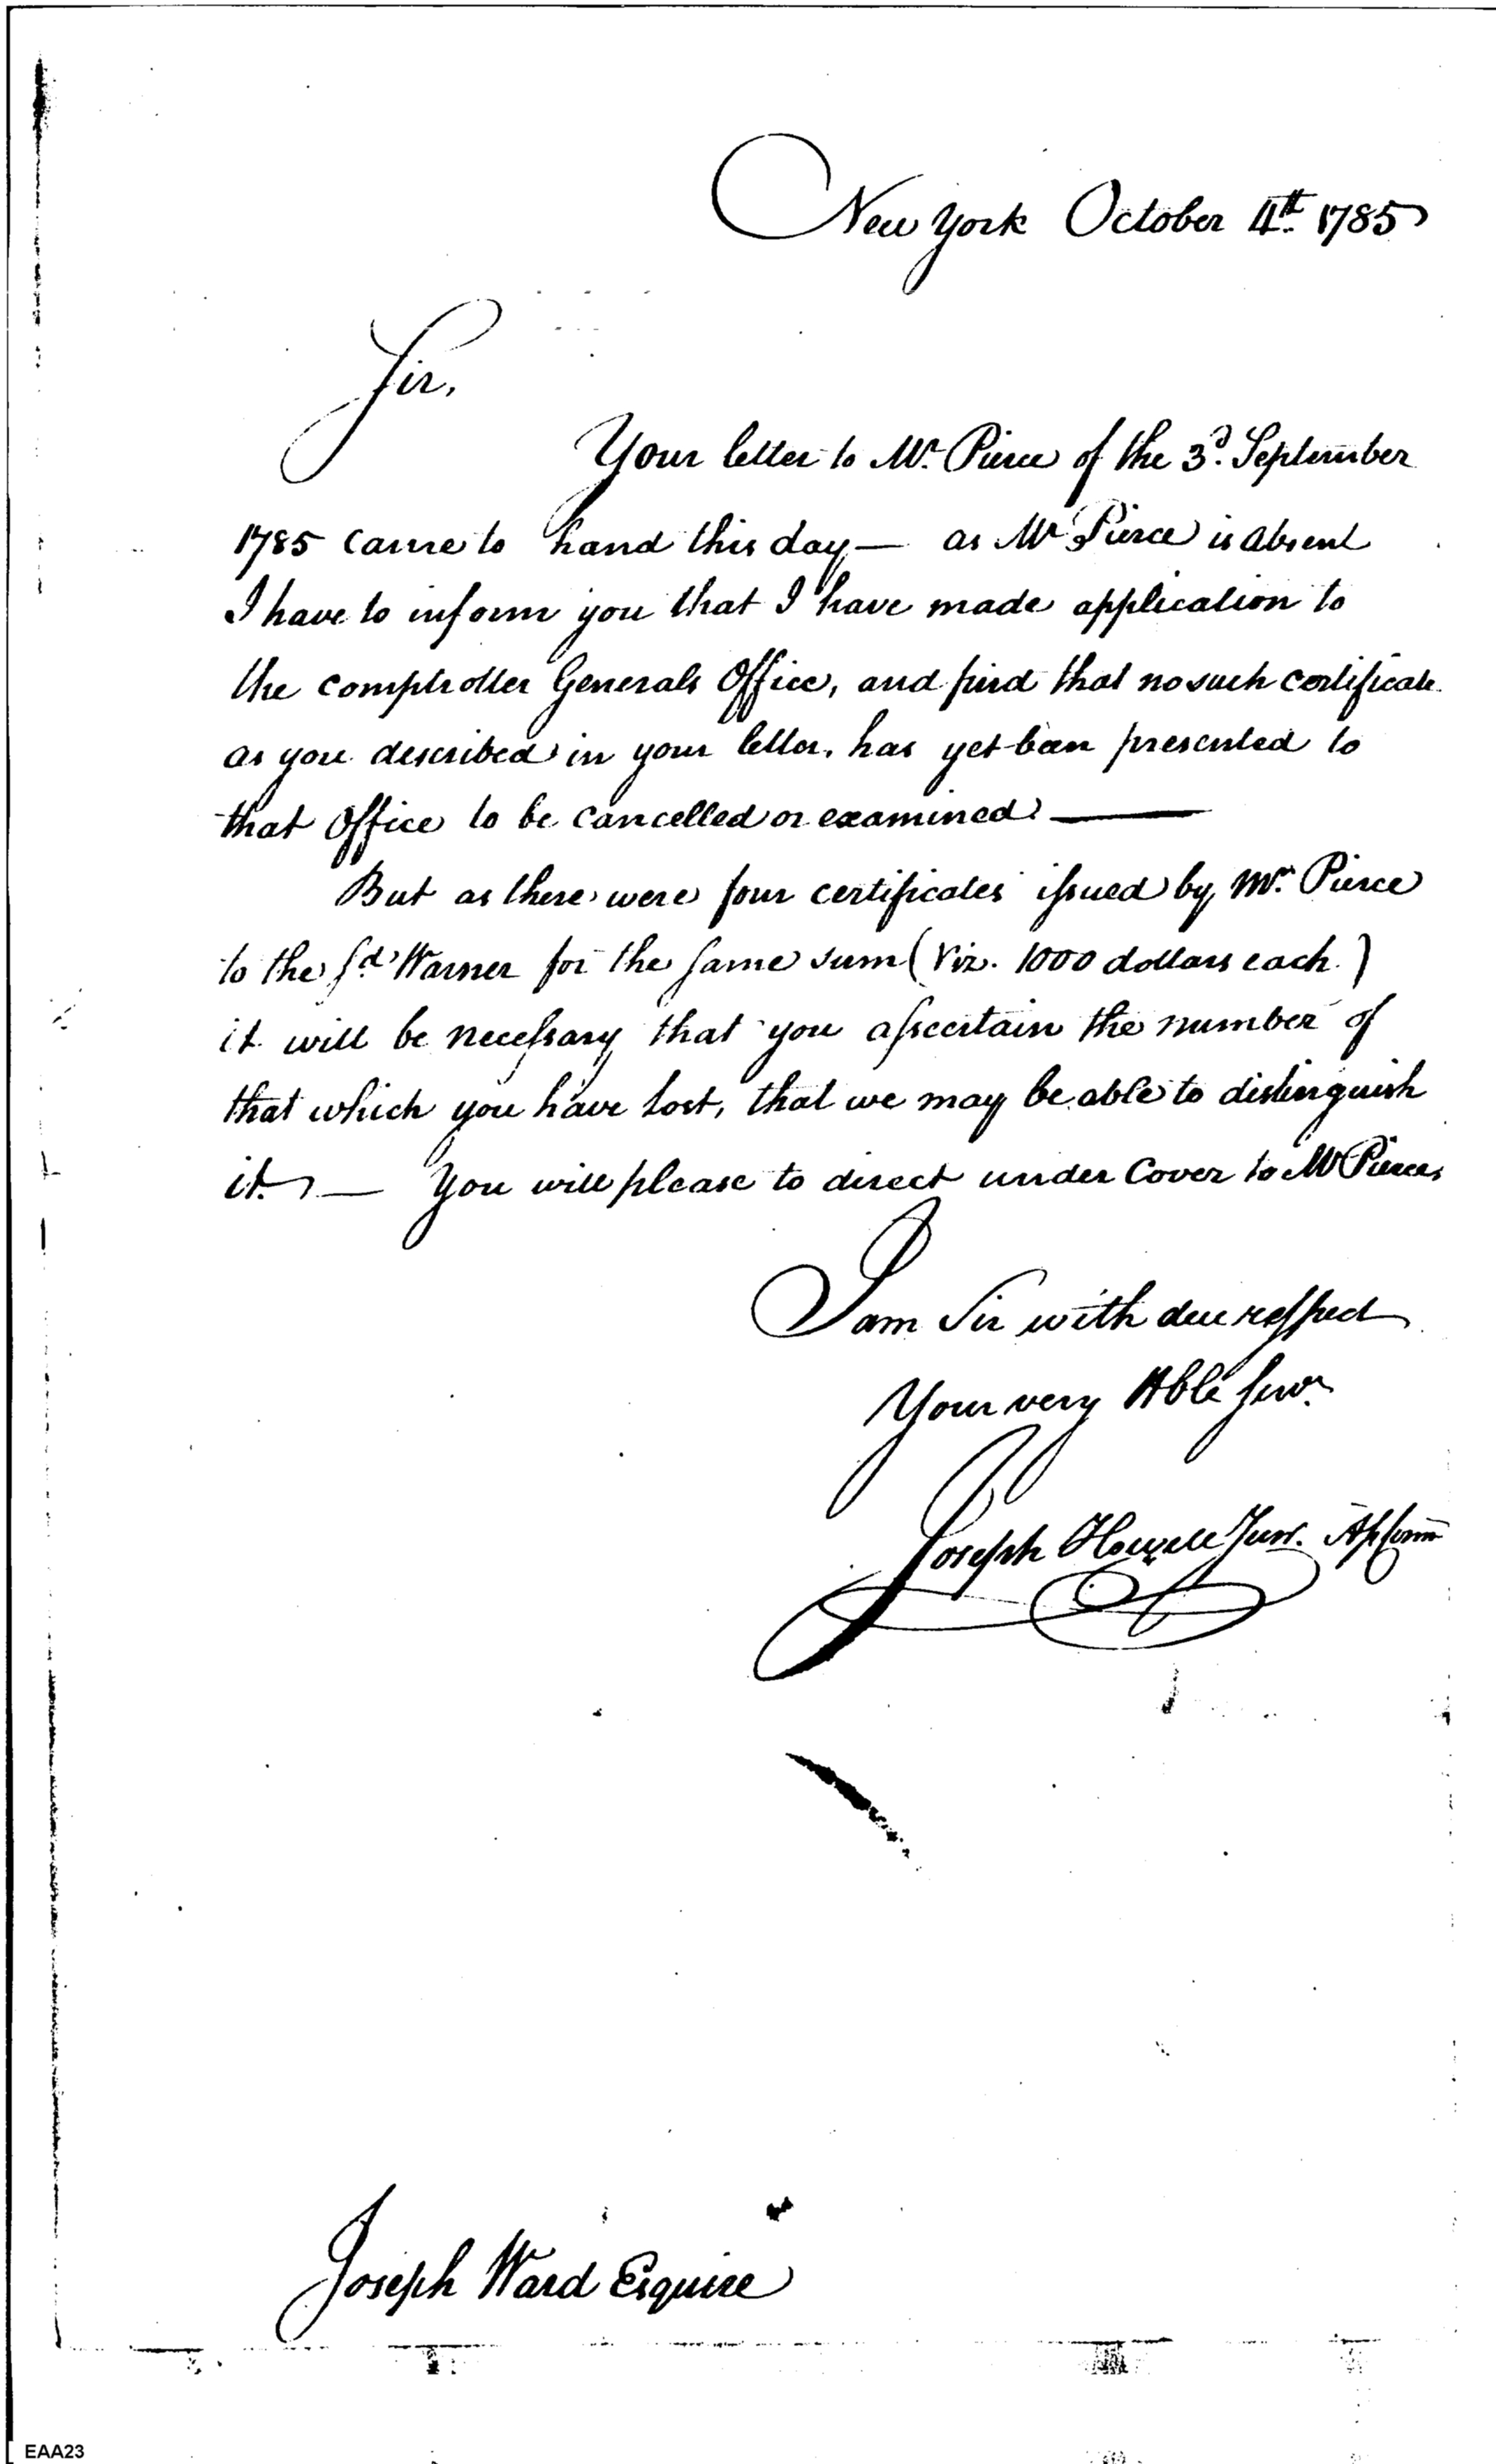 New York October 4th. 1785
Sir,
Your letter to Mr. Pierce of the 3d. September
1785 came to hand this day — as Mr Pierce is absent
I have to inform you that I have made application to
the comptroller Generals Office, and find that no such certificate
as you described in your letter, has yet been presented to
that Office to be cancelled or examined —
But as there were four certificates issued by Mr. Pierce
to the sd. Warner for the same sum (Viz. 1000 dollars each.)
it will be necessary that you asscertain the number of
that which you have lost, that we may be able to distinguish
it. — You will please to direct under Cover to Mr Pierce,
I am Sir with due respect
Your very Hble Serv.
Joseph Howell Junr.
Joseph Ward Esquire
EAA23